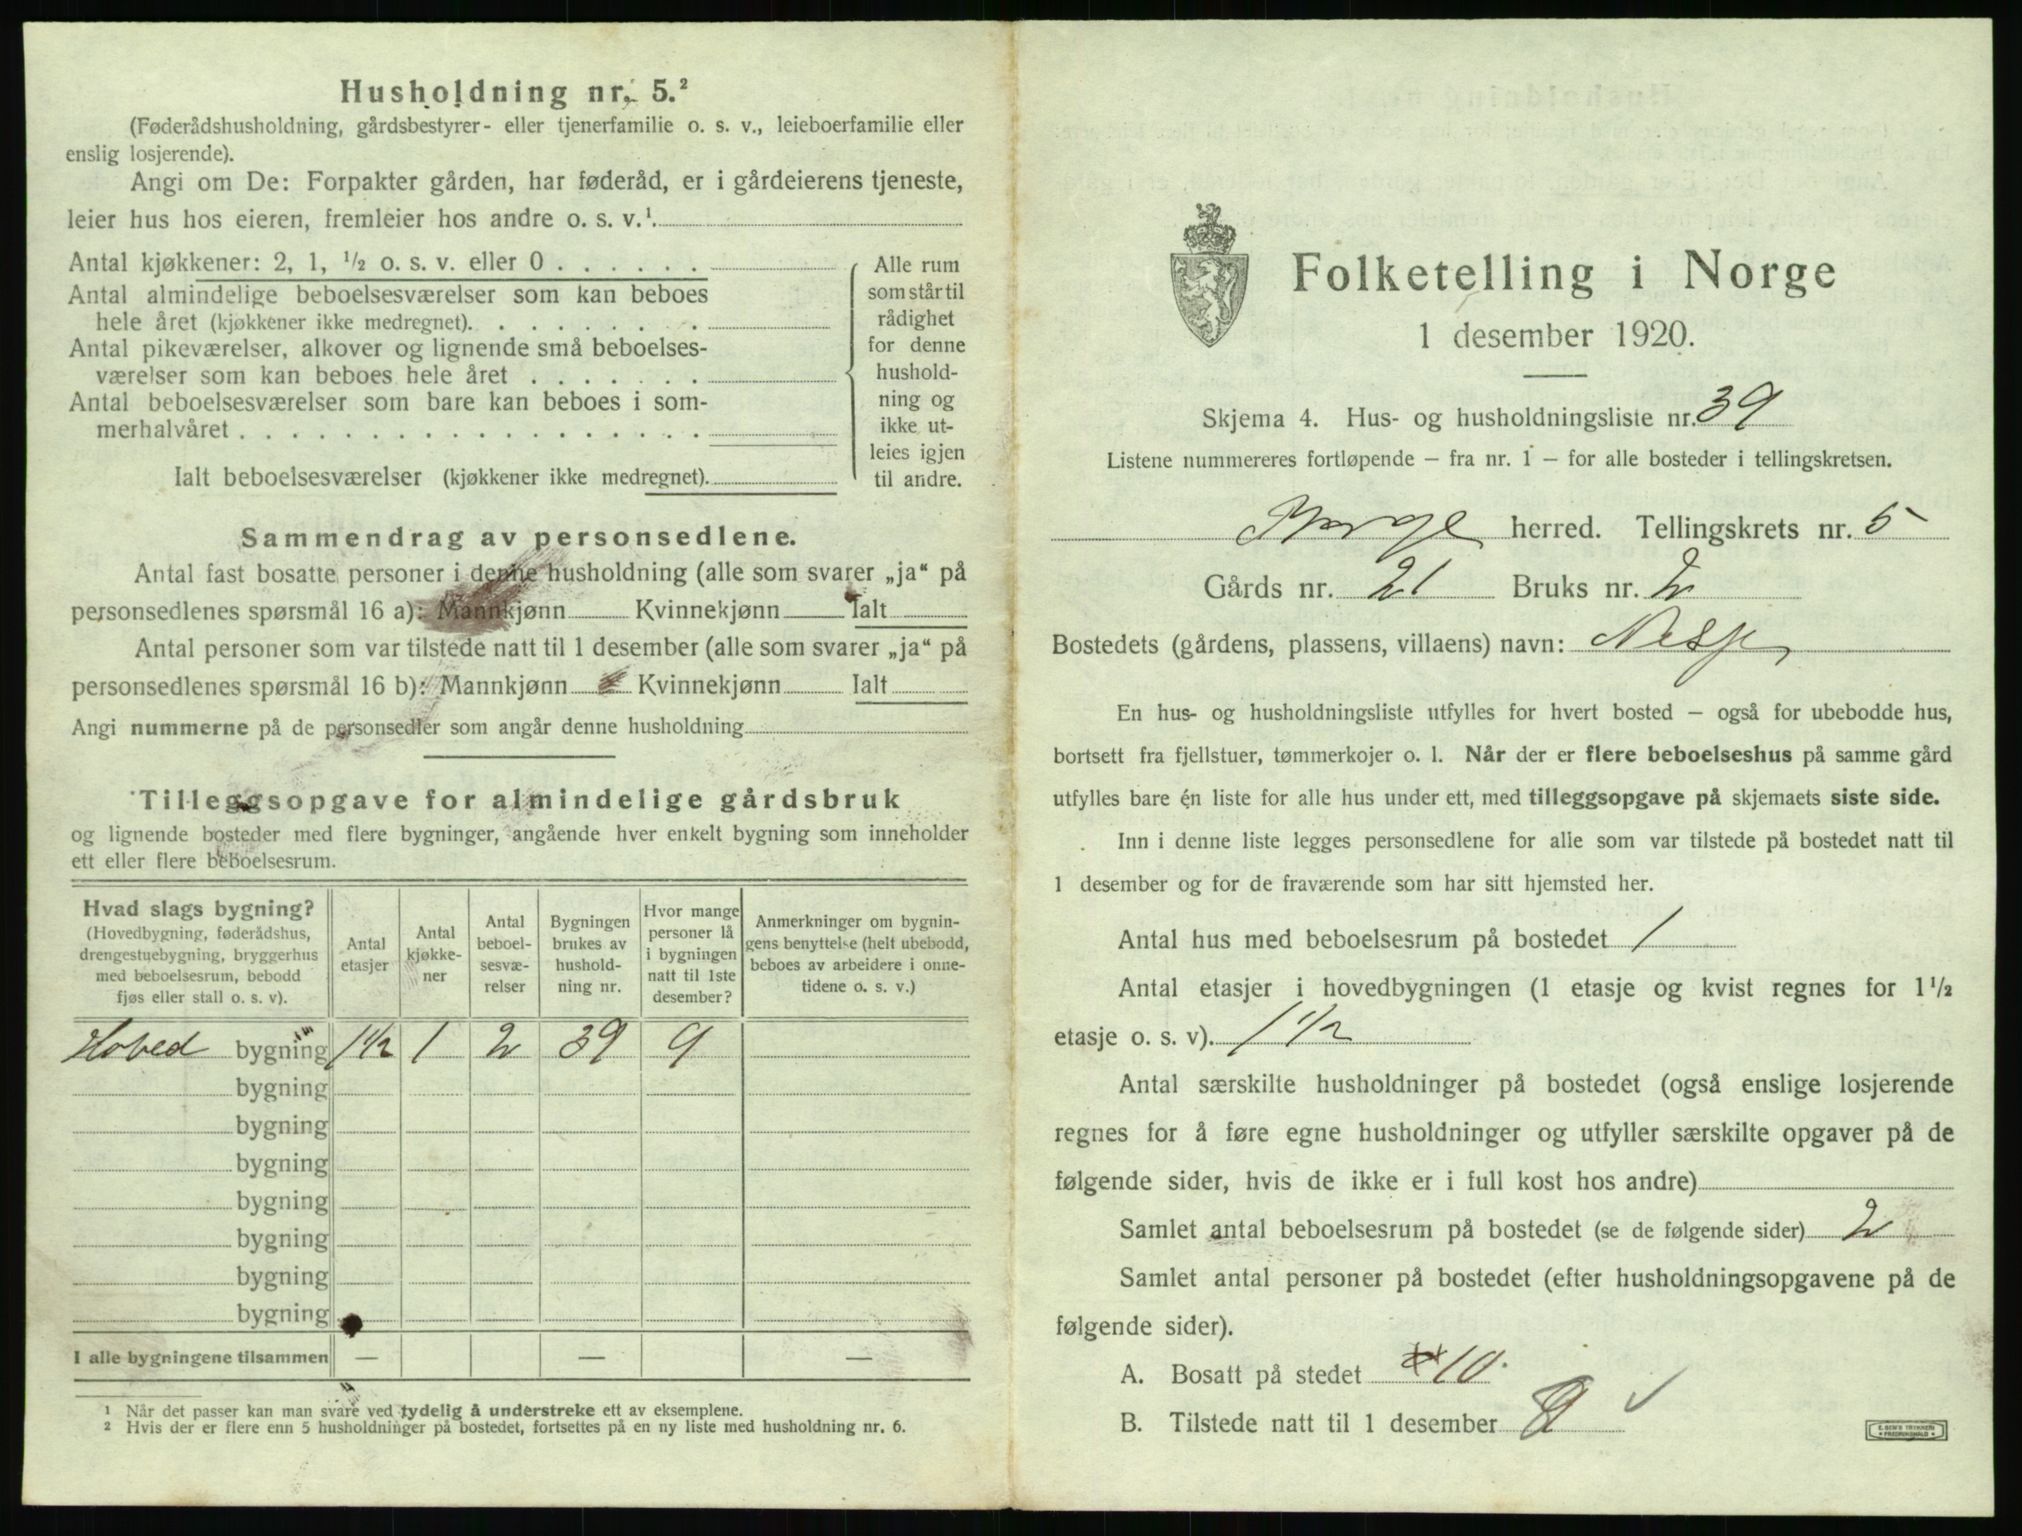 Husholdning nr. 5.²
(Føderådshusholdning, gårdsbestyrer- eller tjenerfamilie o. s. v., leieboerfamilie eller
enslig losjerende).
Angi om De: Forpakter gården, har føderåd, er i gårdeierens tjeneste,
leier hus hos eieren, fremleier hos andre o. s. v.¹.
Antal kjøkkener: 2, 1, ½ o. s. v. eller 0 . . . . . .
Antal almindelige beboelsesværelser som kan beboes
hele året (kjøkkener ikke medregnet). . . . . . . .
Antal pikeværelser, alkover og lignende små beboelses-
værelser som kan beboes hele året . . . . . . .
Antal beboelsesværelser som bare kan beboes i som-
merhalvåret . . . . . . . . . . . . . . . . . .
Ialt beboelsesværelser (kjøkkener ikke medregnet).
Alle rum
som står til
rådighet
for denne
hushold-
ning og
ikke ut-
leies igjen
til andre.
Sammendrag av personsedlene.
Antal fast bosatte personer i denne husholdning (alle som svarer „ja“ på
personsedlenes spørsmål 16 a): Mannkjønn Kvinnekjønn Ialt
Antal personer som var tilstede natt til 1 desember (alle som svarer „ja“ på
personsedlenes spørsmål 16 b): Mannkjønn Kvinnekjønn Ialt
Angi nummerne på de personsedler som angår denne husholdning
Tilleggsopgave for almindelige gårdsbruk
og lignende bosteder med flere bygninger, angående hver enkelt bygning som inneholder
ett eller flere beboelsesrum.
Hvad slags bygning?
(Hovedbygning, føderådshus,
drengestuebygning, bryggerhus
med beboelsesrum, bebodd
fjøs eller stall o. s. v).
Antal
etasjer
Antal
kjøkke-
ner
Antal
beboel-
sesvæ-
relser
Bygningen
brukes av
hushold-
ning nr.
Hvor mange
personer lå
i bygningen
natt til 1ste
desember?
Anmerkninger om bygnin-
gens benyttelse (helt ubebodd,
beboes av arbeidere i onne-
tidene o. s. v.)
Hoved bygning 1 1/2 1 2 39 9
bygning
bygning
bygning
bygning
bygning
bygning
bygning
I alle bygningene tilsammen — — —
¹ Når det passer kan man svare ved tydelig å understreke ett av eksemplene.
² Hvis der er flere enn 5 husholdninger på bostedet, fortsettes på en ny liste med husholdning nr. 6.
Folketelling i Norge
1 desember 1920.
Skjema 4. Hus- og husholdningsliste nr. 39
Listene nummereres fortløpende – fra nr. 1 – for alle bosteder i tellingskretsen.
Borge herred. Tellingskrets nr. 5
Gårds nr. 21 Bruks nr. 2
Bostedets (gårdens, plassens, villaens) navn:
En hus- og husholdningsliste utfylles for hvert bosted – også for ubebodde hus,
bortsett fra fjellstuer, tømmerkojer o. l. Når der er flere beboelseshus på samme gård
utfylles bare én liste for alle hus under ett, med tilleggsopgave på skjemaets siste side.
Inn i denne liste legges personsedlene for alle som var tilstede på bostedet natt til
1 desember og for de fraværende som har sitt hjemsted her.
Antal hus med beboelsesrum på bostedet 1
Antal etasjer i hovedbygningen (1 etasje og kvist regnes for 1½
etasje o. s. v). 1 1/2
Antal særskilte husholdninger på bostedet (også enslige losjerende
regnes for å føre egne husholdninger og utfyller særskilte opgaver på de
følgende sider, hvis de ikke er i full kost hos andre)
Samlet antal beboelsesrum på bostedet (se de følgende sider) 2
Samlet antal personer på bostedet (efter husholdningsopgavene på de
følgende sider).
A. Bosatt på stedet 10
B. Tilstede natt til 1 desember